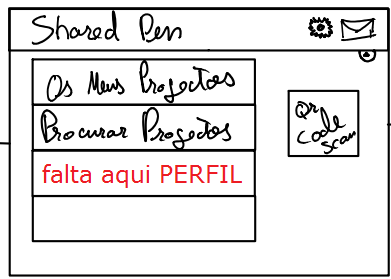 Shared Pen
Os Meus Projectos
Procurar Projectos
falta aqui PERFIL
Qr
Code
Scan